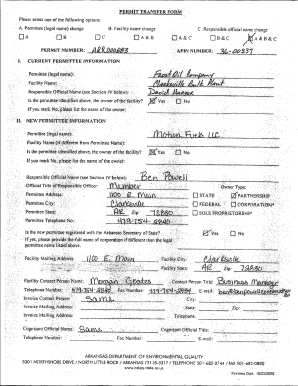 PERMIT TRANSFER FORM
Please select one of the following options:
A. Permittee (legal) name change B. Facility name change C. Responsible official name change
A B C A & B A & C B & C A, B & C
PERMIT NUMBER: AFIN NUMBER: 36-00337
I. CURRENT PERMITTEE INFORMATION
Permittee (legal name): Oil Company
Facility Name: Clarksville Bulk Plant
Responsible Official Name (see Section IV below): David
Is the permittee identified above, the owner of the facility? Yes No
If you mark No, please list the name of the owner:
II. NEW PERMITTEE INFORMATION
Permittee (legal name): Motion Fuels LLC
Facility Name (if different from Permittee Name):
Is the permittee identified above, the owner of the facility? Yes No
If you mark No, please list the name of the owner:
Responsible Official Name (see Section IV below): Ben Powell
Official Title of Responsible Officer: Member Owner Type:
Permittee Address: 1100 E. Main STATE PARTNERSHIP
Permittee City: Clarksville FEDERAL CORPORATION*
Permittee State: AR Zip: 72830 SOLE PROPRIETORSHIP
Permittee Telephone No:
*Is the new permittee registered with the Arkansas Secretary of State? Yes No
If yes, please provide the full name of corporation if different than the legal
permittee name listed above:
Facility Mailing Address: 1100 E. Main Facility City: Clarksville
Facility State: AR Zip: 72830
Facility Contact Person Name: Morgan Contact Person Title: Business Manager
Telephone Number: Fax Number: E-mail:
Invoice Contact Person: Same City:
Invoice Mailing Address: State: Zip:
Invoice Mailing Address
Cognizant Official Name: Same Cognizant Official Title:
Telephone Number: Fax Number: E-mail:
ARKANSAS DEPARTMENT OF ENVIRONMENTAL QUALITY
5301 NORTHSHORE DRIVE / NORTH LITTLE ROCK / ARKANSAS 72118-5317 / TELEPHONE 501-682-0744 / FAX 501-682-0880
www.adeq.state.ar.us